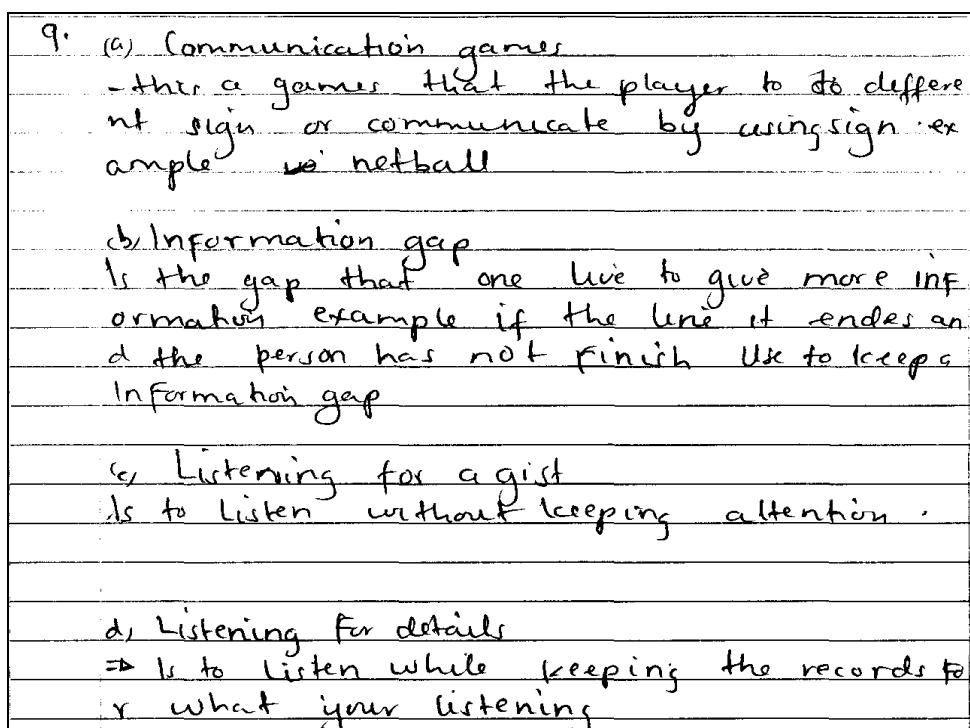 9. (a) Communication games
- this a games that the player to do deffere
nt sign or communicate by using sign .ex
ample netball
(b) Information gap
Is the gap that one live to give more inf
ormation example if the line it endes an
d the person has not finish Use to keep a
Information gap
(c) Listening for a gist
Is to listen without keeping attention .
d) Listening for details
⇒ Is to listen while keeping the records fo
r what your listening